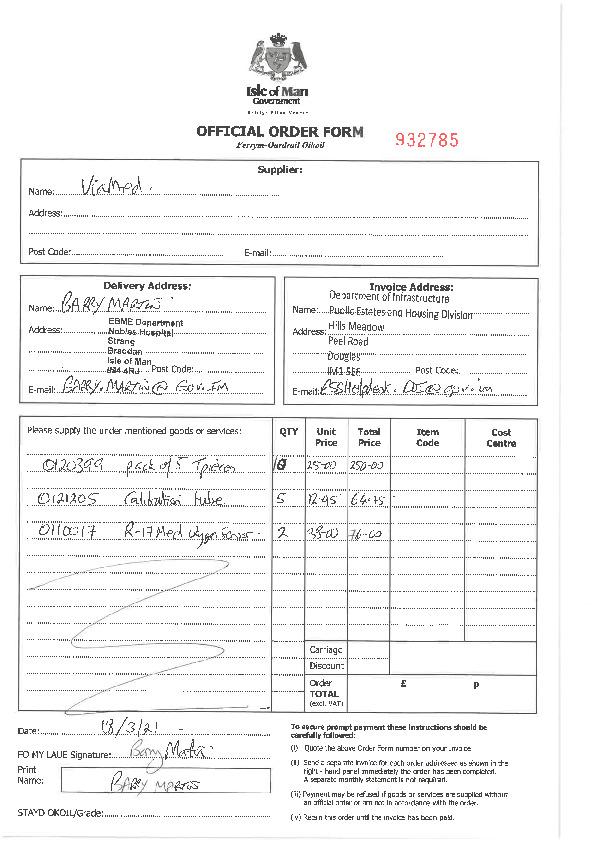 Isle of Man
Government
Reiltys Ellan Vannin
OFFICIAL ORDER FORM
Ferrym-Oardrail Oikoil
932785
Supplier:
Name: Viamed.
Address:
Post Code: E-mail:
Delivery Address:
Name: BARRY MARTIN
Address: EBME Department
Nobles Hospital
Strang
Braddan
Isle of Man
IM4 4RJ Post Code:
E-mail: BARRY.MARTIN@GOV.IM
Invoice Address:
Department of Infrastructure
Name: Public Estates and Housing Division
Address: Hills Meadow
Peel Road
Douglas
IM1 5EE Post Code:
E-mail:
Please supply the under mentioned goods or services: QTY Unit Price Total Price Item Code Cost Centre
0120399 pack of 5 T pieces 10 25-00 250-00
0121205 Calibration tube 5 12.95 64.75
0110017 R-17 Med oxygen sensor 2 38-00 76-00
Carriage
Discount
Order TOTAL (excl. VAT) £ p
Date: 18/3/21
FO MY LAUE Signature: Barry Martin
Print Name: BARRY MARTIN
STAYD OKOIL/Grade:
To secure prompt payment these instructions should be
carefully followed:
(i) Quote the above Order Form number on your invoice
(ii) Send a separate invoice for each order addressed as shown in the
right - hand panel immediately the order has been completed.
A separate monthly statement is not required.
(iii) Payment may be refused if goods or services are supplied without
an official order or are not in accordance with the order.
(iv) Retain this order until the invoice has been paid.